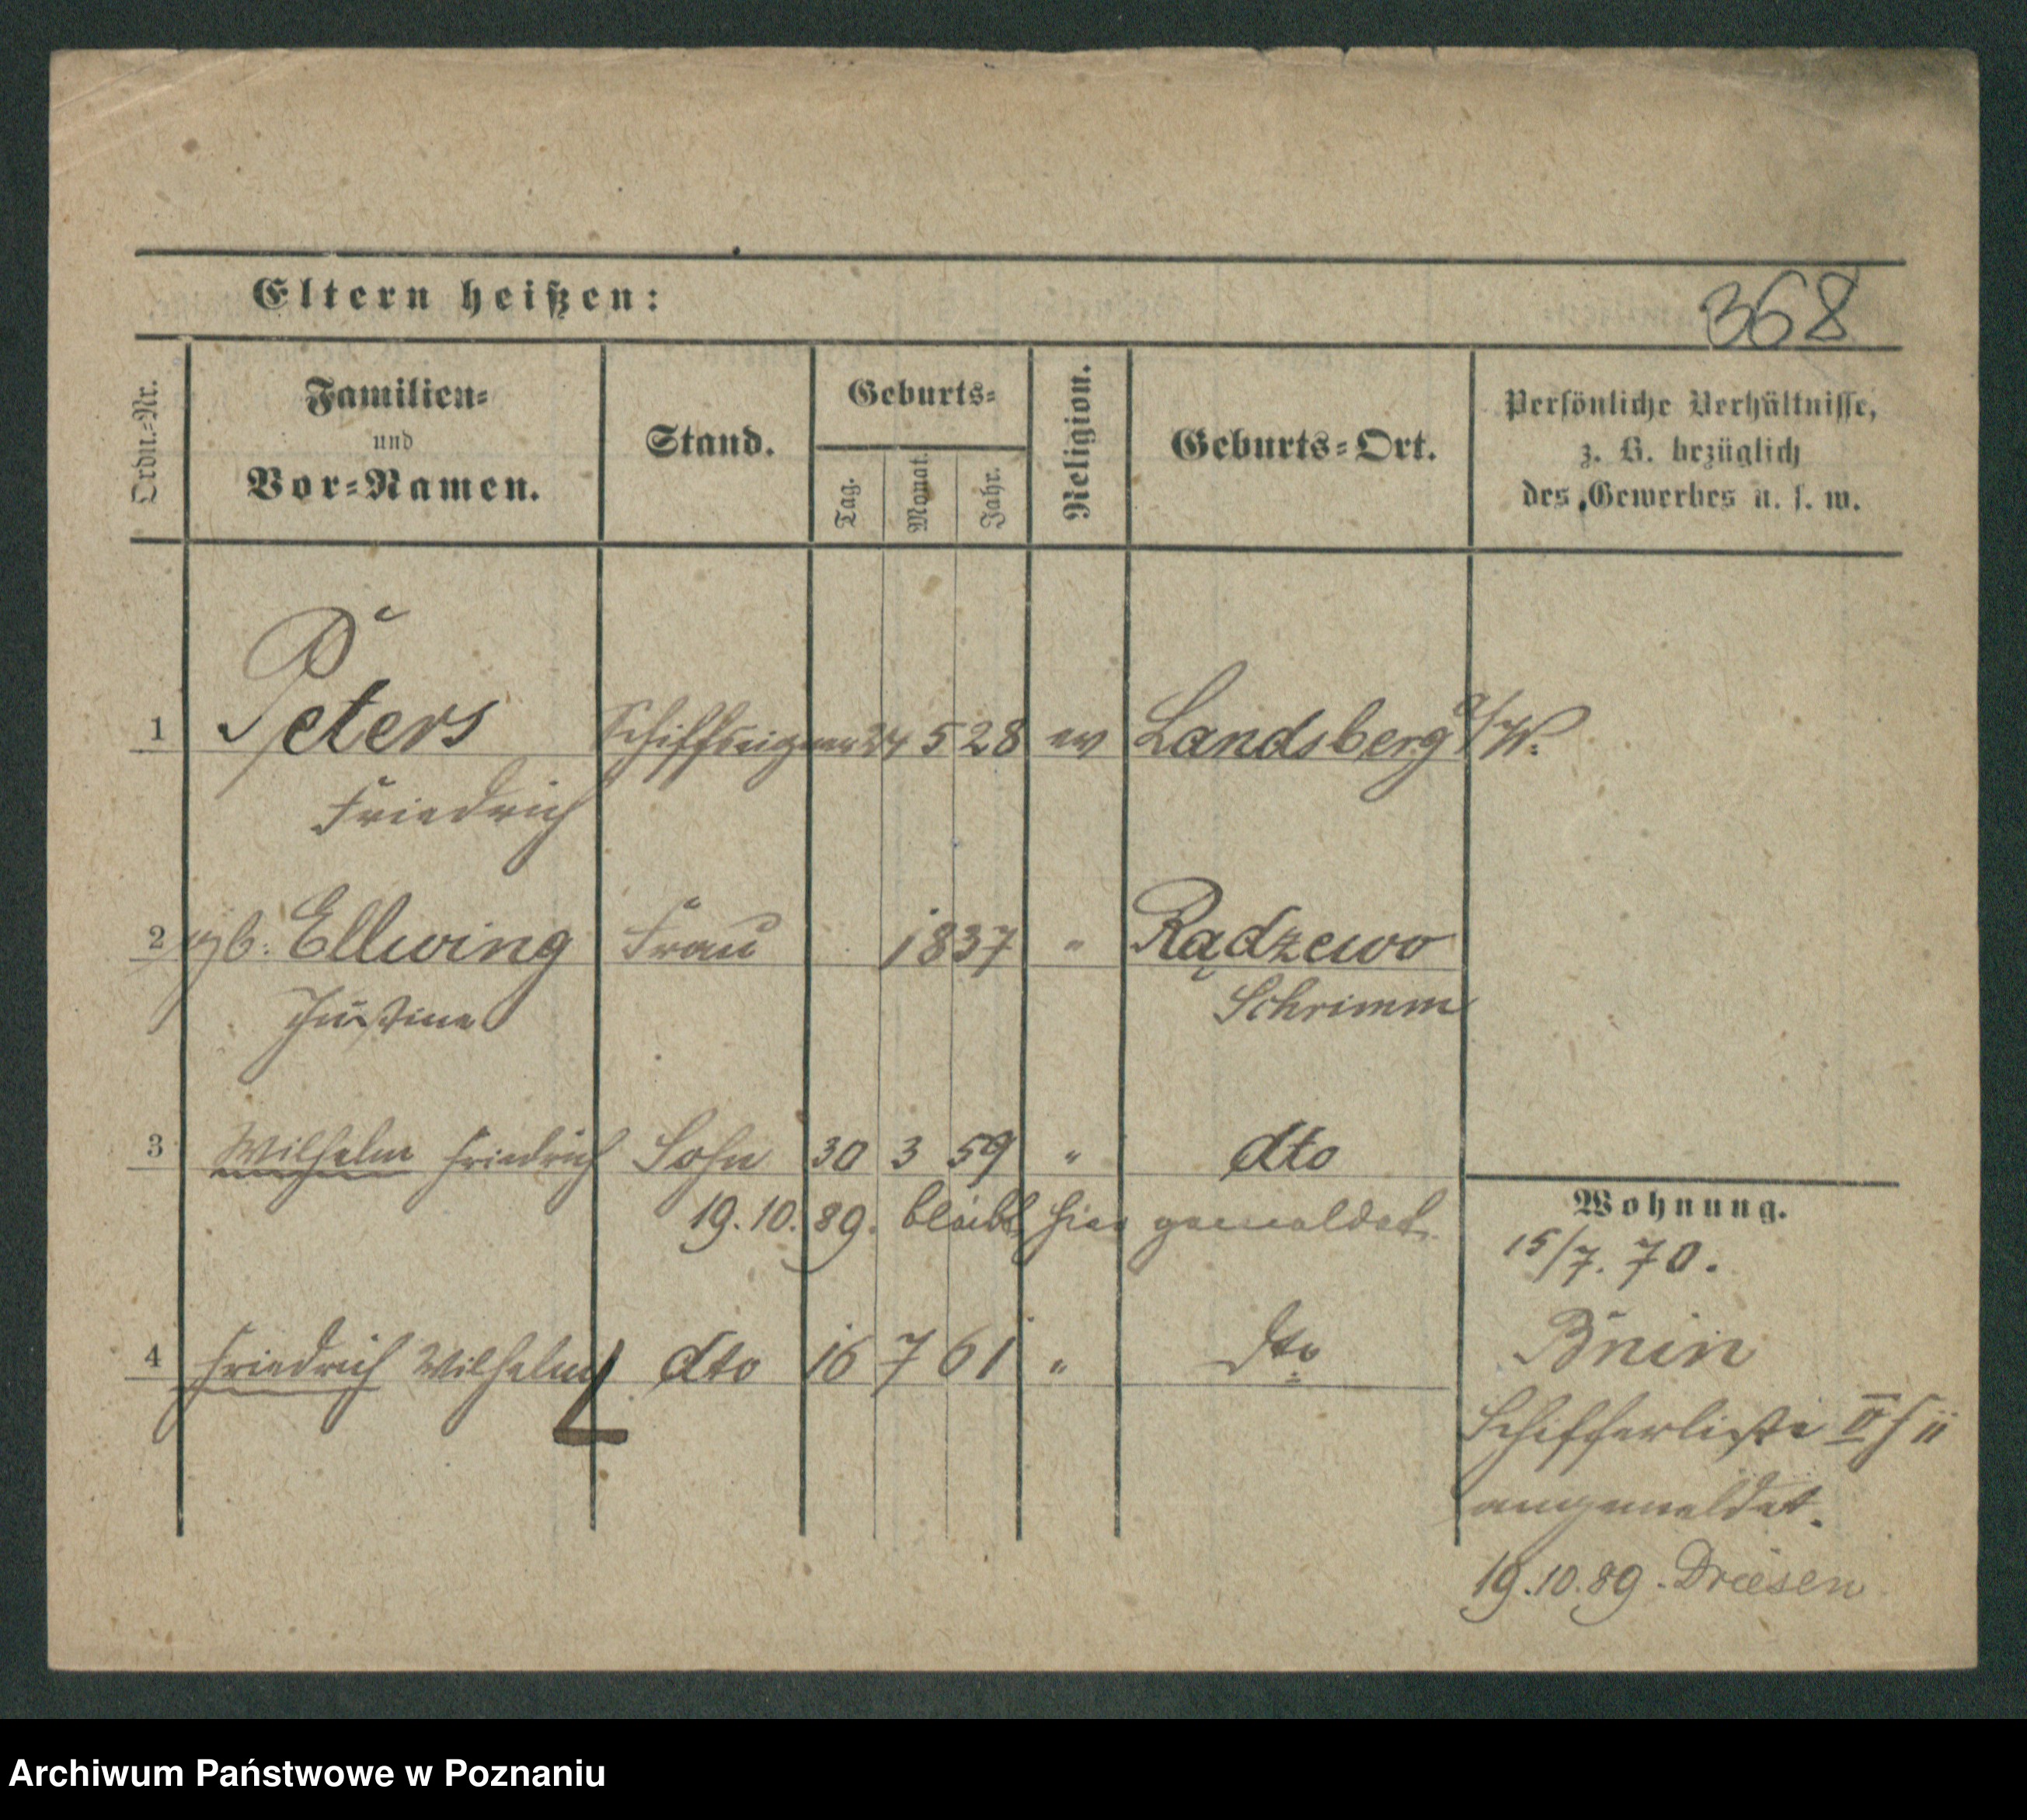 Eltern heißen:
368
Ordn.-Nr.
Familien-
und
Vor-Namen.
Stand.
Geburts-
Tag.
Monat.
Jahr.
Religion.
Geburts-Ort.
Persönliche Verhältnisse,
z. B. bezüglich
des Gewerbes u. s. w.
1 Peters Schiffseigner 24 5 28 ev Landsberg a/W.
Friedrich
2 geb. Ellwing Frau 1837 " Rądzewo
Justine Schrimm
3 Wilhelm Friedrich Sohn 30 3 59 " dto
19.10.89. bleibt hier gemeldet.
4 Friedrich Wilhelm dto 16 7 61 " dto
Wohnung.
15/7. 70.
Bnin
Schifferliste II
angemeldet.
19.10.89. Driesen
Archiwum Państwowe w Poznaniu